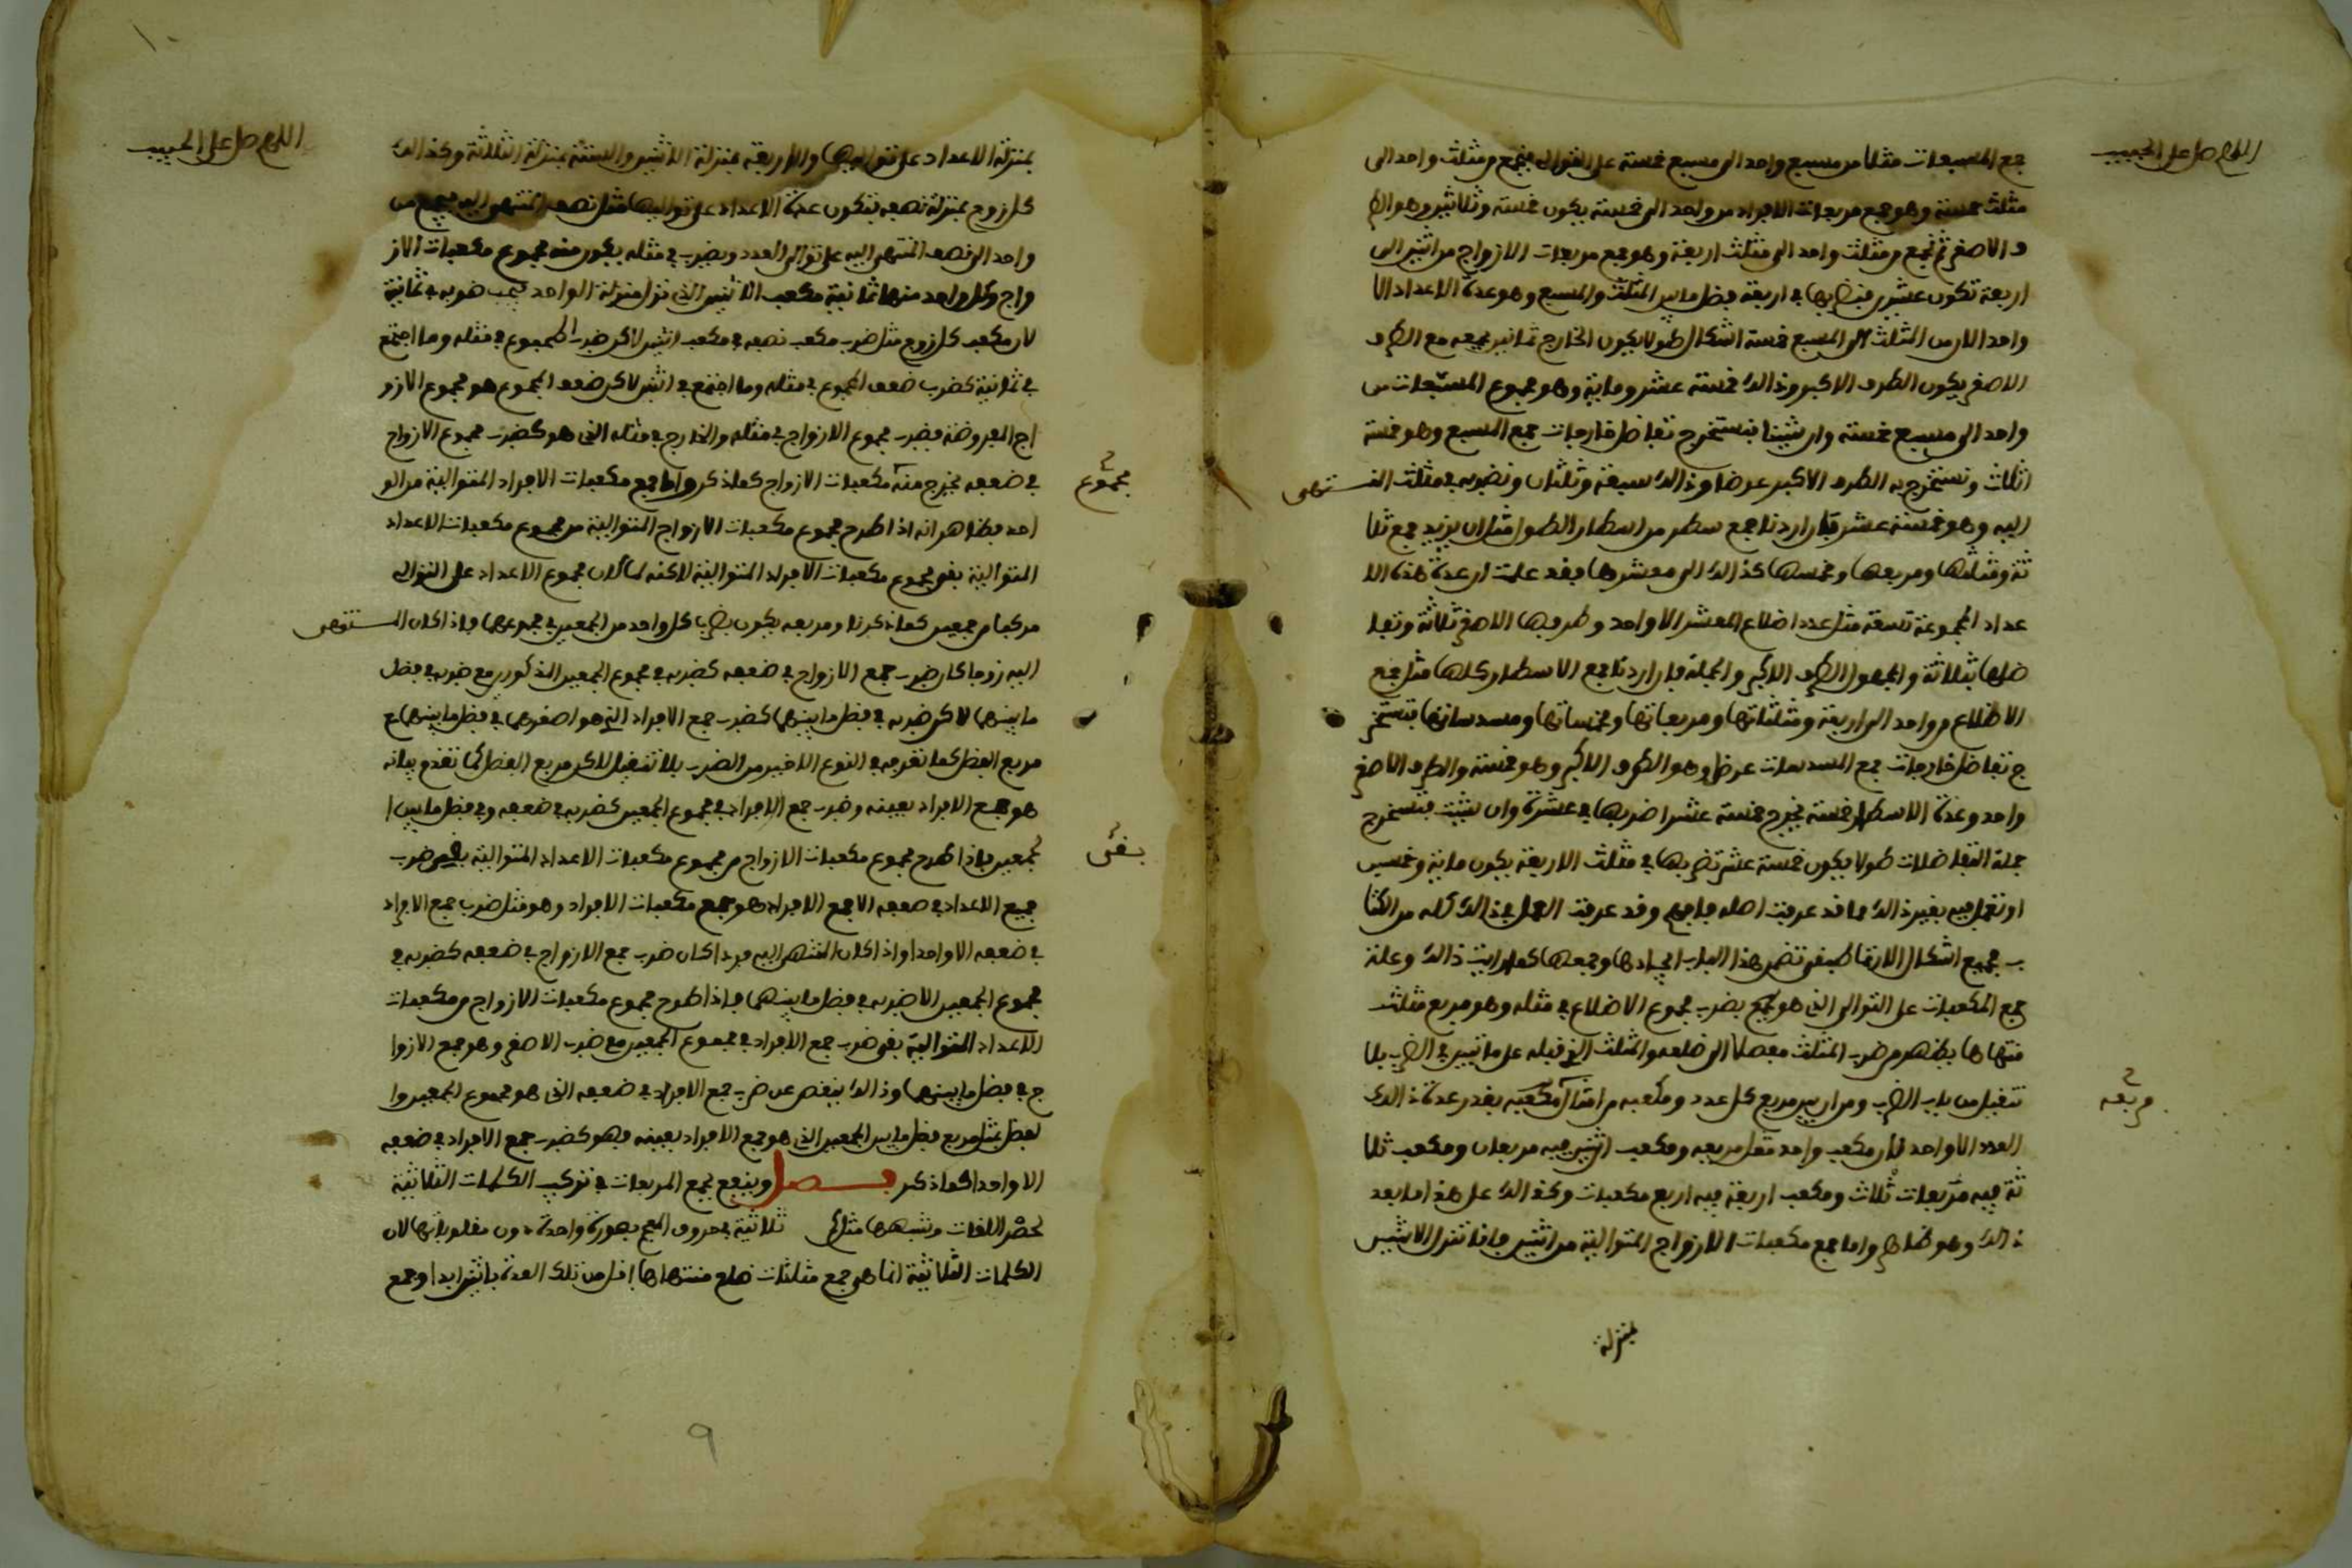 اللهم صل على الحبيب
جمع المسبعات مثلا من مسبع واحد الى مسبع خمسة على التوالي فتجمع من مثلث واحد الى
مثلث خمسة وهو جمع مربعات الافراد من واحد الى خمسة يكون خمسة وثلاثين وهو الطر
ف الاصغر ثم تجمع من مثلث واحد الى مثلث اربعة وهو جمع مربعات الازواج من اثنين الى
اربعة تكون عشرين فتضربها في اربعة فضل ما بين المثلث والمسبع وهو عدة الاعداد الا
واحد الان من المثلث الى المسبع خمسة اشكال طولا يكون الخارج ثمانين تجمعه مع الطرف
الاصغر يكون الطرف الاكبر وذالك خمسة عشر وماية وهو مجموع المسبعات من
واحد الى مسبع خمسة وان شيت فتستخرج تفاضل خارجات جمع المسبع وهو خمسة
اثلاث وتستخرج به الطرف الاكبر عرضا وذالك سبعة وثلثان وتضربه في مثلث المنتهى
اليه وهو خمسة عشر فان اردنا جمع سطر من اسطار الطول مثل ان يزيد جمع ثلا
ثة ومثلثها ومربعها ومخمسها كذالك الى معشرها فقد علمت ان عدة هذه الا
عداد المجموعة تسعة مثل عدد اضلاع المعشر الا واحد وطرفها الاصغر ثلاثة وتفا
ضلها بثلاثة والمجهول الطرف الاكبر والجملة فان اردنا جمع الاسطار كلها مثل جمع
الاضلاع من واحد الى اربعة ومثلثاتها ومربعاتها ومخمساتها ومسدساتها فتستخر
ج تفاضل خارجات جمع المسدسات عرضا وهو الطرف الاكبر وهو خمسة والطرف الاصغر
واحد وعدة الاسطار خمسة يخرج خمسة عشر اضربها في عشرة وان شيت فتستخرج
جملة التفاضلات طولا يكون خمسة عشر تضربها في مثلث الاربعة يكون ماية وخمسين
او تعمل فيه بغير ذالك مما قد عرفت اصله فافهم وقد عرفت العمل في ذالك كله من الكتا
ب جميع اشكال الارتماطيقي تضمن هذا الباب ايجادها وجمعها كما رايت ذالك وعلة
جمع المكعبات على التوالي الذي هو يكون بضرب مجموع الاضلاع في مثله وهو مربع مثلث
منتهاها يظهر من ضرب المثلث مفصلا الى ضلعه والمثلث الذي قبله على ما تبين في الضرب بلا
تنقيل من باب الضرب ومن ان بين مربع كل عدد ومكعبه من امثال مربعه بقدر عدة ذالك
مربعه
العدد الا واحد لان مكعب واحد مثل مربعه ومكعب اثنين فيه مربعان ومكعب ثلا
ثة فيه مربعات ثلاث ومكعب اربعة فيه اربع مكعبات وكذالك على هذا ما بعد
ذالك وهو ظاهر واما جمع مكعبات الازواج المتوالية من اثنين فانا ننزل الاثنين
بمنزلة
اللهم صل على الحبيب
بمنزلة الاعداد على تواليها والاربعة بمنزلة الاثنين والستة بمنزلة الثلاثة وكذالك
كل زوج بمنزلة نصفه فتكون عدة الاعداد على تواليها مثل نصف المنتهى اليه فيجمع من
واحد الى نصف المنتهى اليه على توالي العدد ويضرب في مثله يكون منه مجموع مكعبات الاز
واج وكل واحد منها ثمانية مكعب الاثنين الذي نزل منزلة الواحد فيجب ضربه في ثمانية
لان مكعب كل زوج مثل ضرب مكعب نصفه في مكعب اثنين لاكن ضرب المجموع في مثله وما اجتمع
في ثمانية كضرب ضعف المجموع في مثله وما اجتمع في اثنين لاكن ضعف المجموع هو مجموع الازو
اج المعروضة فيضرب مجموع الازواج في مثله والخارج في مثله الذي هو كضرب مجموع الازواج
في ضعفه يخرج منه مكعبات الازواج كما ذكر واما جمع مكعبات الافراد المتوالية من الو
مجموع
احد فظاهر انه اذا طرح مجموع مكعبات الازواج المتوالية من مجموع مكعبات الاعداد
المتوالية بقي مجموع مكعبات الافراد المتوالية لاكنه لما كان مجموع الاعداد على التوالي
مركبا من جمعين كما ذكرنا ومربعه يكون بضرب كل واحد من الجمعين في مجموعهما فاذا كان المنتهى
اليه زوجا كان ضرب جمع الازواج في ضعفه كضربه في مجموع الجمعين المذكورين مع ضربه في فضل
ما بينهما لاكن ضربه في فضل ما بينهما كضرب جمع الافراد الذي هو اصغرهما في فضل ما بينهما مع
مربع الفضل كما تقرر في النوع الاخير من الضرب بلا تنقيل لاكن مربع الفضل كما تقدم بيانه
هو جمع الافراد بعينه وضرب جمع الافراد في مجموع الجمعين كضربه في ضعفه وفي فضل ما بين ا
لجمعين فاذا طرح مجموع مكعبات الازواج من مجموع مكعبات الاعداد المتوالية بقي ضرب
بقى
جميع الاعداد في ضعفه الا جمع الافراد هو جمع مكعبات الافراد وهو مثل ضرب جمع الافراد
في ضعفه الا واحدا واذا كان المنتهى اليه فردا كان ضرب جمع الازواج في ضعفه كضربه في
مجموع الجمعين الا ضربه في فضل ما بينهما فاذا طرح مجموع مكعبات الازواج من مكعبات
الاعداد المتوالية بقي ضرب جمع الافراد في مجموع الجمعين مع ضرب الاصغر وهو جمع الازوا
ج في فضل ما بينهما وذالك ينقص عن ضرب جمع الافراد في ضعفه الذي هو مجموع الجمعين وا
لفضل بمثل مربع فضل ما بين الجمعين الذي هو جمع الافراد بعينه فهو كضرب جمع الافراد في ضعفه
الا واحدا كما ذكر فصل وينفع جمع المربعات في تركيب الكلمات الثلاثية
لحصر اللغات وشبهها مثل كم ثلاثية في حروف المعجم بصورة واحدة دون مقلوباتها لان
الكلمات الثلاثية انما هي جمع مثلثات ضلع منتهاها اقل من تلك العدة باثنين ابدا وجمع
٩